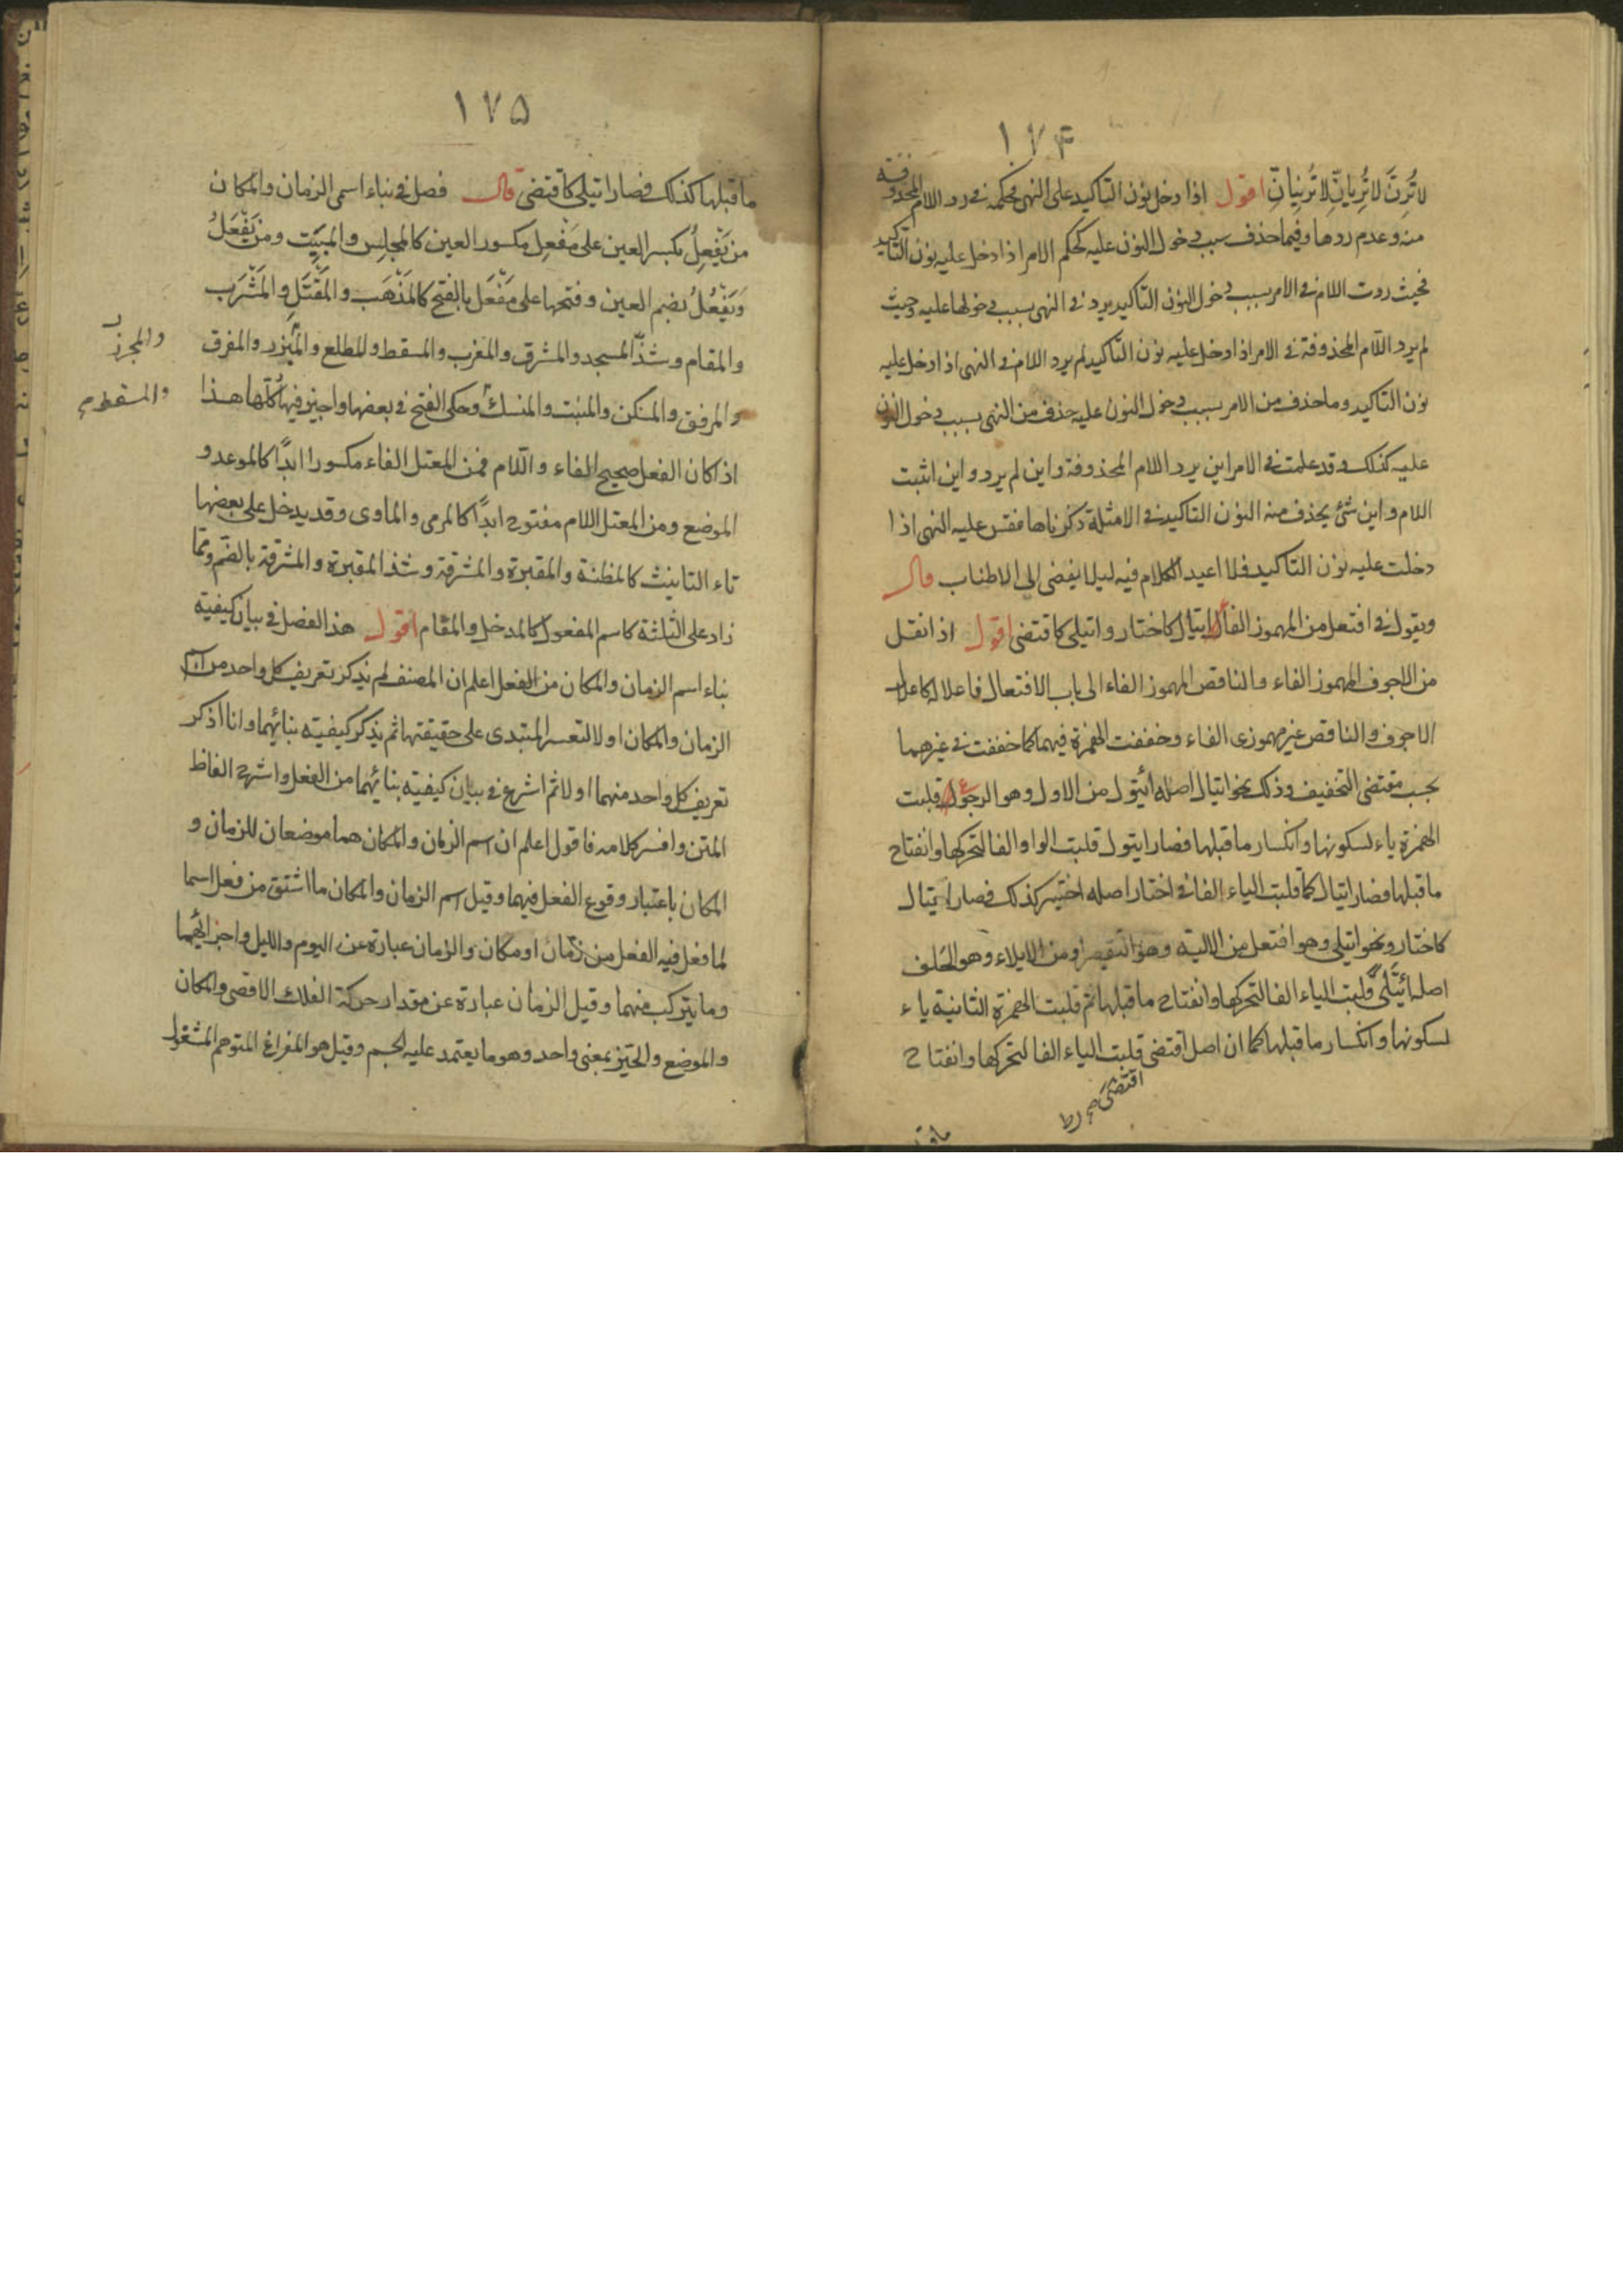 ١٧۴
لا تُرِنَّ لا تُرِيانِّ لا تُرِنيانِّ اقول اذا دخل نون التاكيد على النهى فحكمه فى رد اللام المحذوفة
منه وعدم ردها وفيما حذف بسبب دخول النون عليه كحكم الامر اذا دخل عليه نون التاكيد
فحيث ردت اللام فى الامر بسبب دخول النون التاكيد يرد فى النهى بسبب دخولها عليه وحيث
لم يرد اللام المحذوفة فى الامر اذا دخل عليه نون التاكيد لم يرد اللام فى النهى اذا دخل عليه
نون التاكيد وما حذف من الامر بسبب دخول النون عليه حذف من النهى بسبب دخول النون
عليه كذلك وقد علمت فى الامر اين يرد اللام المحذوفة واين لم يرد واين اثبت
اللام واين شئ يحذف منه النون التاكيد فى الامثلة ذكرناها فقس عليه النهى اذا
دخلت عليه نون التاكيد فلا اعيد الكلام فيه ليلا يفضى الى الاطناب قال
ويقول فى افتعل من المهموز الفاء ايتال كاختار وايتلى كاقتضى اقول اذا نقل
من الاجوف المهموز الفاء والناقص المهموز الفاء الى باب الافتعال فاعلاله كاعلال
الاجوف والناقص غير مهموزى الفاء وخففت الهمزة فيهما كما خففت فى غيرهما
بحسب مقتضى التخفيف وذلك نحو ايتال اصله ائتول من الاول وهو الرجوع قلبت
الهمزة ياء لسكونها وانكسار ما قبلها فصار ايتول قلبت الواو الفا لتحركها وانفتاح
ما قبلها فصار ايتال كما قلبت الياء الفا فى اختار اصله اختير كذلك فصار ايتال
كاختار ونحو ايتلى وهو افتعل من الالية وهو التقصير او من الايلاء وهو الحلف
اصله ائتَلَى قلبت الياء الفا لتحركها وانفتاح ما قبلها ثم قلبت الهمزة الثانية ياء
لسكونها وانكسار ما قبلها كما ان اصل اقتضى قلبت الياء الفا لتحركها وانفتاح
اقتضَىَ
١٧۵
ما قبلها كذلك فصار ايتلى كاقتضى قال فصل فى بناء اسمى الزمان والمكان
من يَفْعِلُ بكسر العين على مَفْعِل مكسور العين كالمجلِس والمَبِيَّت ومن يَفْعَلُ
وَيَفْعُلُ بضم العين وفتحها على مَفْعَل بالفتح كالمَذْهَب والمَقْتَل والمَشْرَب
والمقام وشذّ المسجد والمشرق والمغرب والمسقط والمطلع والمَجْزِر والمفرق
والمجزر
والمرفق والمسكن والمنبت والمنسك وحكى الفتح فى بعضها واجيز فيها كُلّها هذا
والمسقط
اذا كان الفعل صحيح الفاء واللام فمن المعتل الفاء مكسورا ابدًا كالموعد و
الموضع ومن المعتل اللام مفتوح ابدًا كالمرمى والماوى وقد يدخل على بعضها
تاء التانيث كالمظنة والمقبرة والمشرقة وشذ المقبرة والمشرقة بالضم ومما
زاد على الثلثة كاسم المفعول كالمدخل والمقام اقول هذا الفصل فى بيان كيفية
بناء اسم الزمان والمكان من الفعل اعلم ان المصنف لم يذكر تعريف كل واحد من اسم
الزمان والمكان اولا لتعسر المبتدى على حقيقتها ثم يذكر كيفية بنائهما وانا اذكر
تعريف كل واحد منهما اولا ثم اشرع فى بيان كيفية بنائهما من الفعل واشرح الفاظ
المتن وافسر كلامه فاقول اعلم ان اسم الزمان والمكان هما موضعان للزمان و
المكان باعتبار وقوع الفعل فيهما وقيل اسم الزمان والمكان ما اشتق من فعل اسما
لما فعل فيه الفعل من زمان او مكان والزمان عبارة عن اليوم والليل واجزائهما
وما يتركب منهما وقيل الزمان عبارة عن مقدار حركة الفلك الاقصى والمكان
والموضع والحيّز بمعنى واحد وهو ما يعتمد عليه الجسم وقيل هو الفراغ المتوهم المشغول